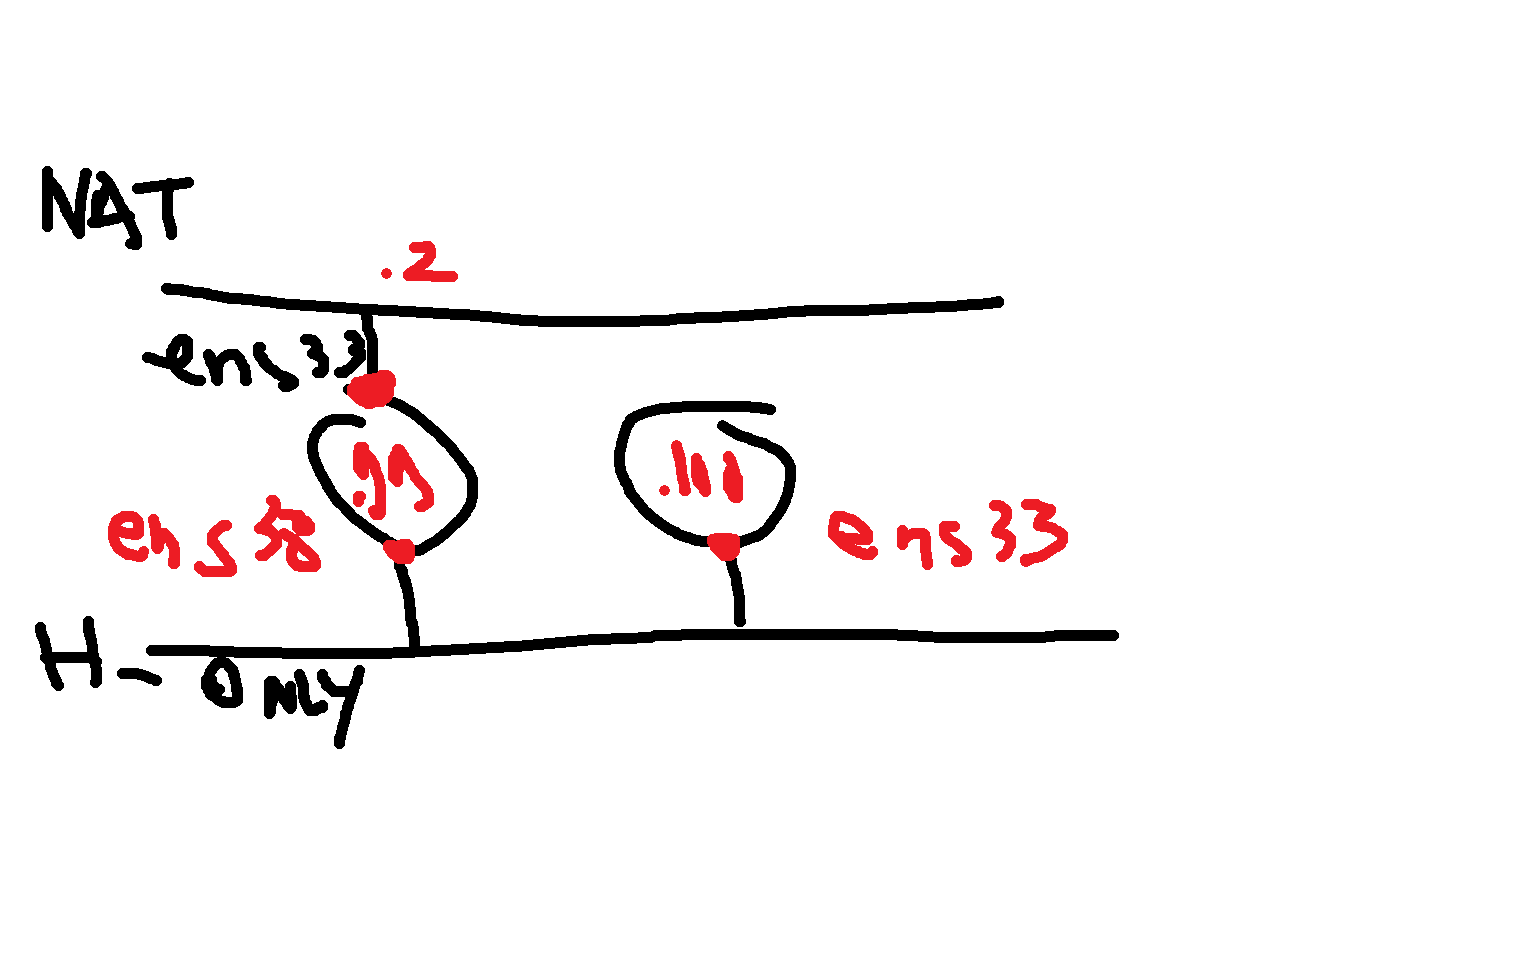 NAT
.2
ens33
.99
.111
ens38
ens33
H-ONLY